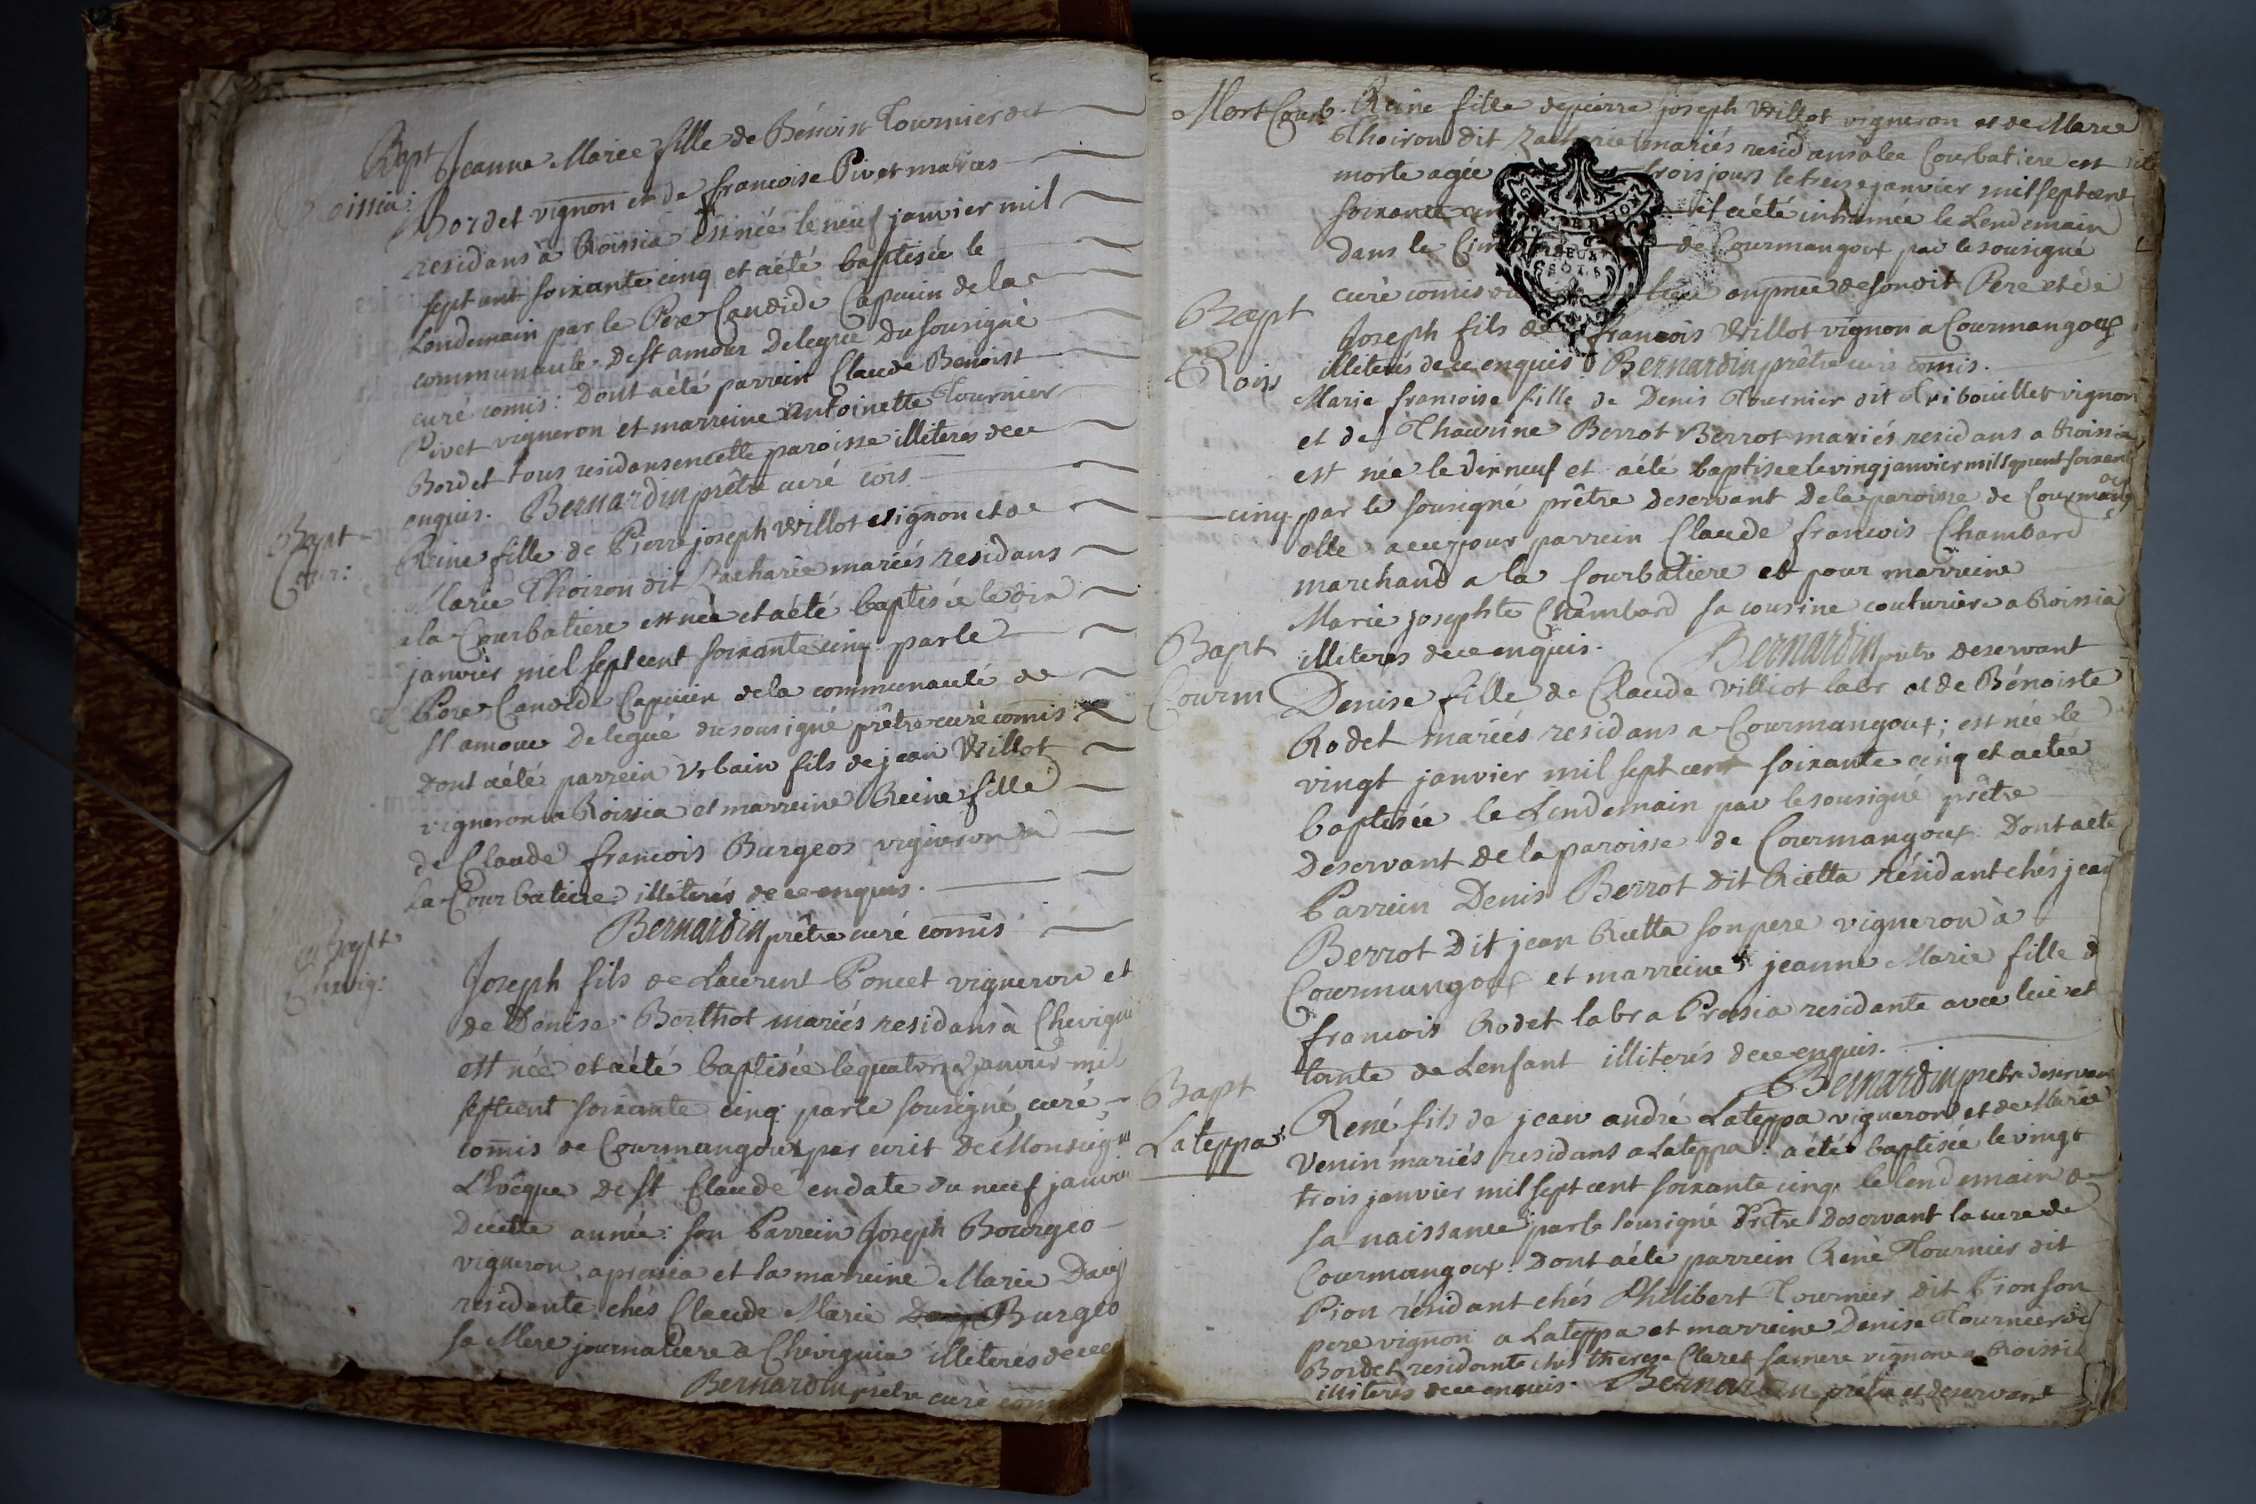 Bapt
Roissia:
Jeanne Marie fille de Bénoist Tournier dit
Bordet vignon et de francoise Pivet mariés
residans à Roissia est née le neuf janvier mil
sept cent soixante cinq et aété baptisée le
Lendemain par le Pere Candide Capucin de la
communauté De st amour Delegué Du sousigné
curé comis: Dont aété parrein Claude Benoist
Pivet vigneron et marreine Antoinette Tournier
Bordet tous residans en cette paroisse illiteres de ce
enquis. Bernardin prêtre curé cois
Bapt
Cour:
Reine fille de Pierre joseph Willot vignon et de
Marie Thoiron dit Zacharie mariés residans
a la Courbatiere est née et aété baptisée le dix
janvier mil sept cent soixante cinq par le
Pere Candide Capucin de la communauté de
st amour Delegué du sousigné prêtre curé comis
Dont aété parrein Urbain fils de jean Willot
vigneron a Roissia et marreine Reine fille
de Claude francois Burgeos vigneron a
La Courbatiere illiterés de ce enquis.
Bernardin prêtre curé comis
Bapt
Chevig:
Joseph fils de Laurent Poncet vigneron et
de Denise Berthot mariés residans à Chevigna
est née et aété baptisée le quatorze janvier mil
septcent soixante cinq par le sousigné curé
comis de Courmangoux par ecrit de Monseign
L'évêque de st Claude en date du neuf janvier
Decette année: son Parrein Joseph Bourgeo
vigneron a pressia et la marreine Marie
residente chés Claude Marie Burgeo
sa Mere journaliere a Cheviguia illiterés de ce e
Bernardin prêtre curé comis
Mort Courb.
Reine fille de pierre joseph Willot vigneron et de Marie
Thoiron dit Zacharie mariés residans a la Courbatiere est
morte agée trois jours le treise janvier mil sept cent
soixante cinq et aété inhumée le Lendemain
dans le Cimetiere de Courmangoux par le sousigné
curé comis du en pnce de son dit Pere et de
Joseph fils de francois Willot vignon a Courmangoux
illiterés de ce enquis Bernardin prêtre curé comis.
Bapt
Rois
Marie francoise fille de Denis Tournier dit Tribouillet vignon
et de Berrot Berrot mariés residans a Roissia
est née le dixneuf et aété baptisée le ving janvier mil sept cent soixante
cinq par le sousigné prêtre deservant Dela paroisse de Courmang
elle a eu pour parrein Claude francois Chambard
marchand a la Courbatiere et pour marreine
Marie josephte Chambard sa cousine couturiere a Roissia
illiteres de ce enquis. Bernardin prêtre deservant
Bapt
Courm
Denise fille de Claude Villiot labr et de Bénoiste
Rodet mariés residans a Courmangoux; est née le
vingt janvier mil sept cent soixante cinq et aétée
baptisée le Lendemain par le sousigné prêtre
Deservant de la paroisse de Courmangoux. Dont aété
Parrein Denis Berrot dit Rietta résidant chés jean
Berrot Dit jean Rietta son pere vigneron à
Courmangoux et marreine jeanne Marie fille d
francois Rodet labr a Pressia residante avec lui et
tante de Lenfant illiterés de ce enquis.
Bernardin prêtre deservant
Bapt
Lateppa
René fils de jean andré Lateppa vigneron et de Marie
Venin mariés residans a Lateppa: a été baptisée le vingt
trois janvier mil sept cent soixante cinq le lendemain de
sa naissance par le sousigné Prêtre Deservant la cure de
Courmangoux: Dont aété parrein René Tournier dit
Pion résidant chés Philibert Tournier dit Pion son
pere vignon a Lateppa et marreine Denise Tournier di
Bordet residente ches therese Claret sa mere vignone a Roissi
illiterés de ce enquis. Bernardin prêtre et deservant